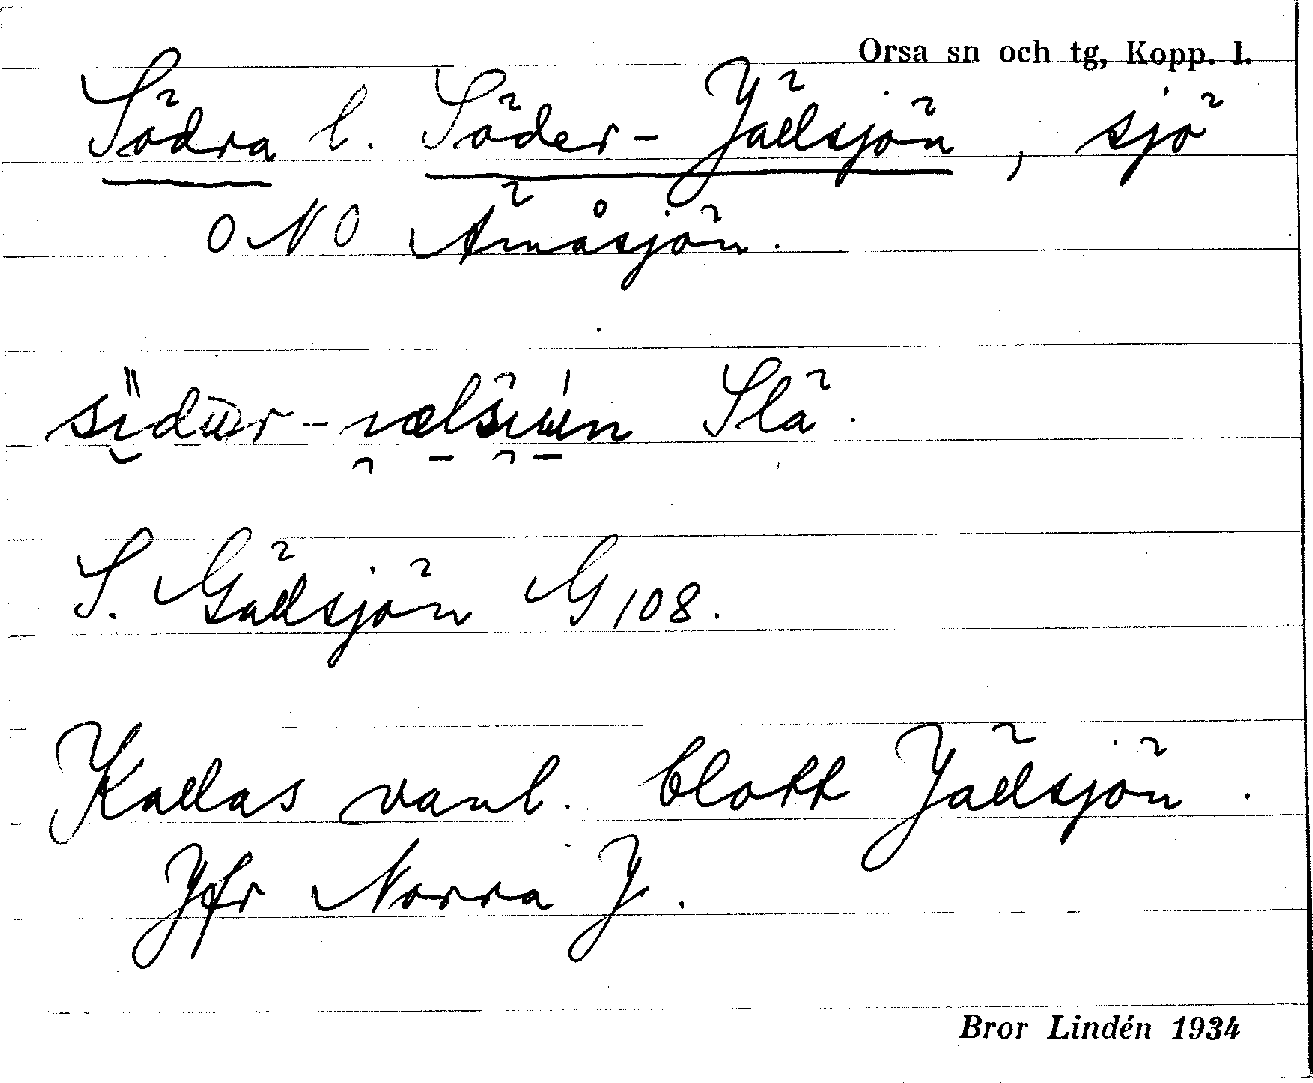 Orsa sn och tg, Kopp. l.
Södra l. Söder-Jällsjön, sjö
ONO Ämåsjön.
Slä.
S. Gällsjön G 108.
Kallas vanl. blott Jällsjön.
Jfr Norra J.
Bror Lindén 1934